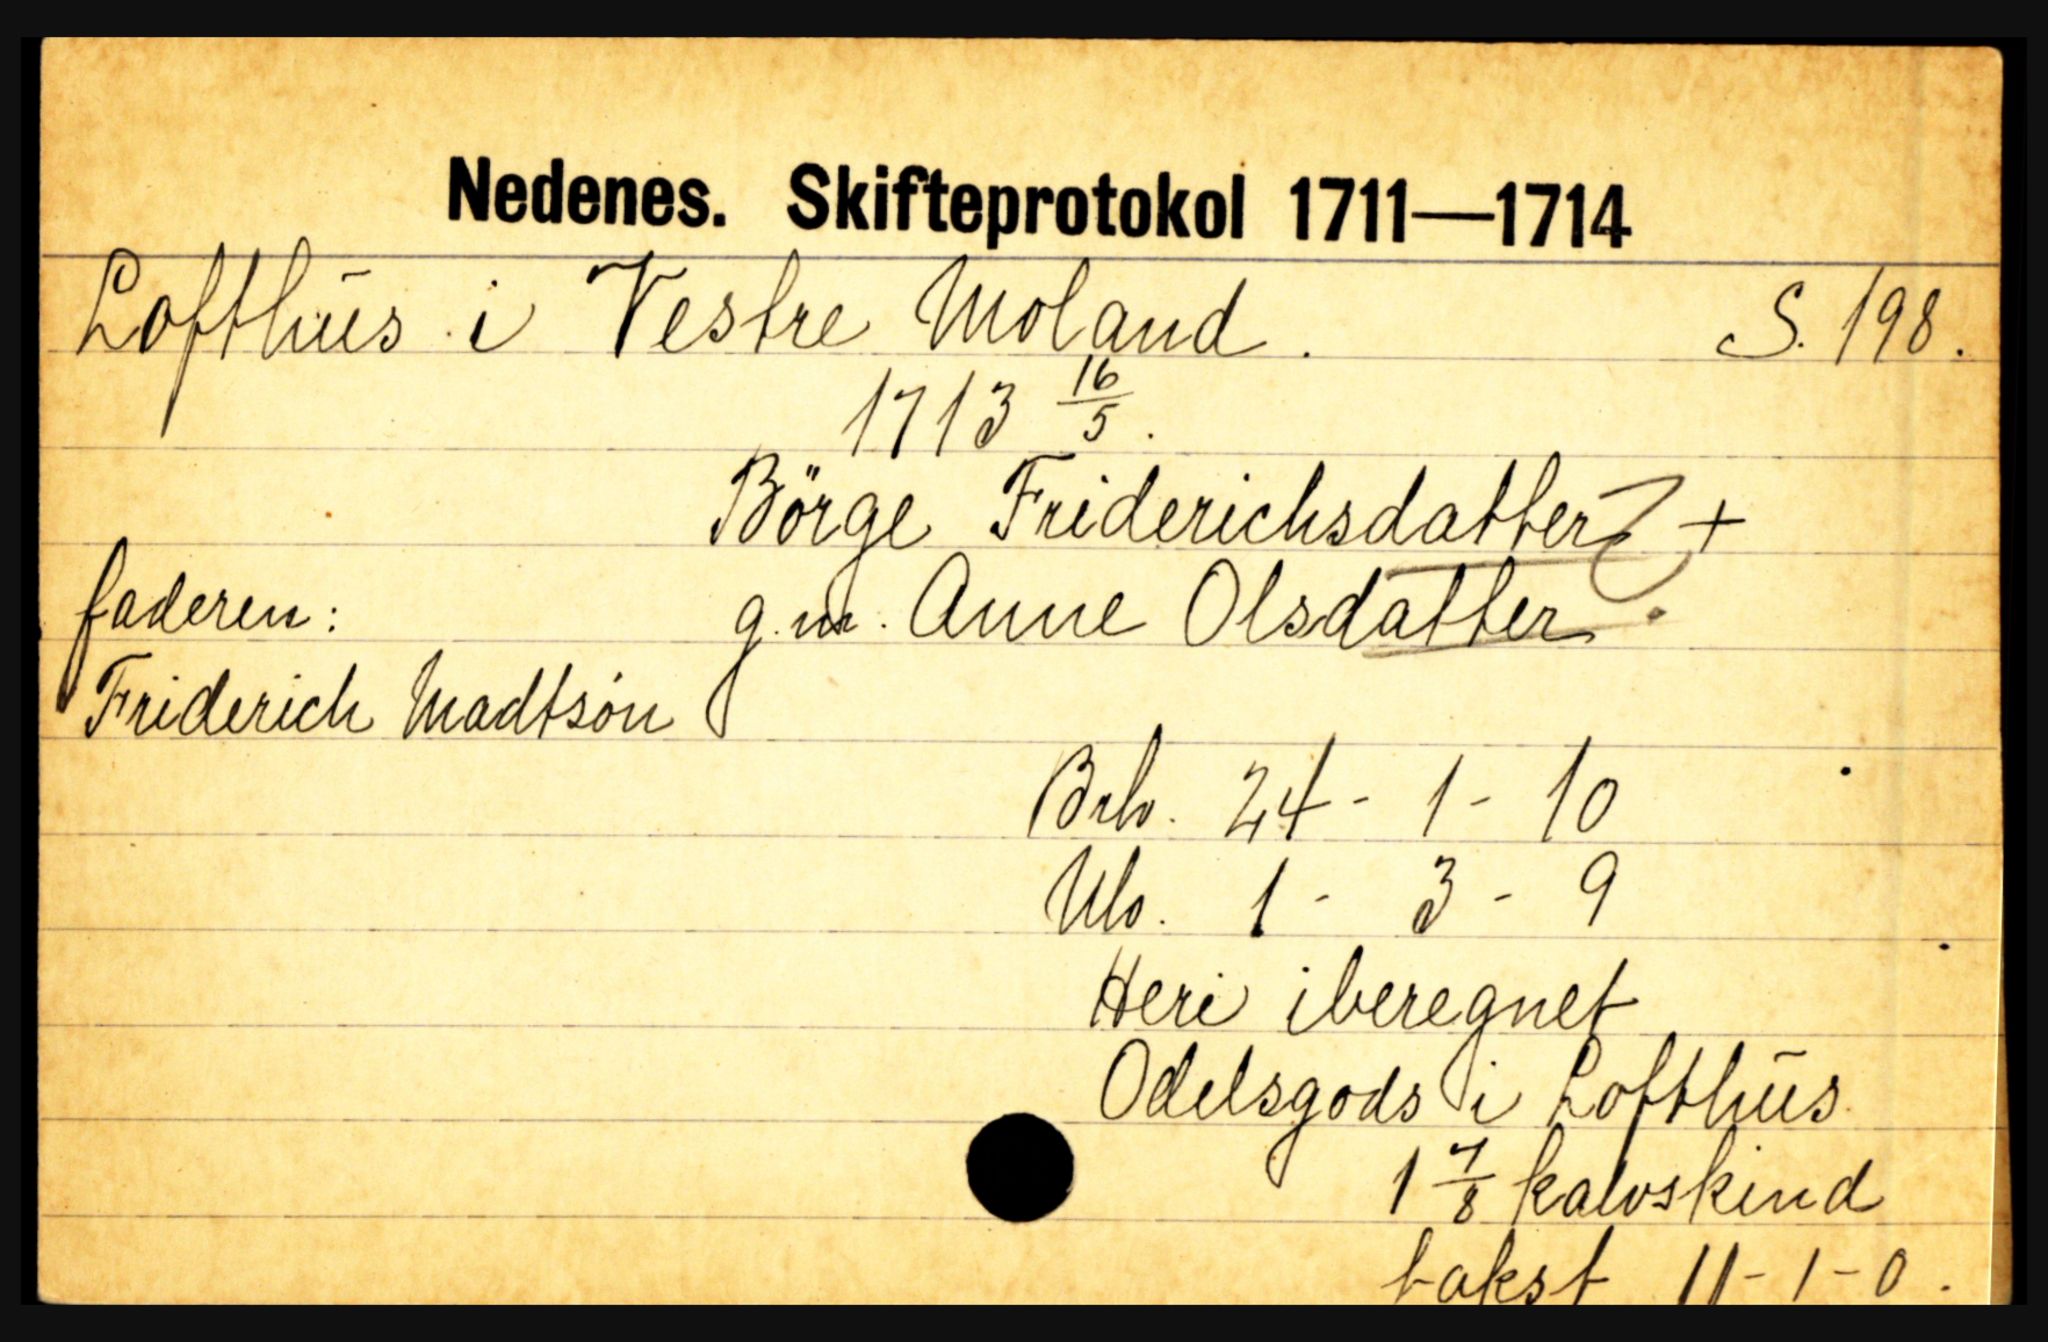 Nedenes. Skifteprotokol 1711—1714
Lofthus i Vestre Moland. S. 198.
1713 16/5.
Börge Friderichsdatter ? +
faderen: g.m. Anne Olsdatter
Friderich Madtsön
Brb. 24 - 1 - 10
Ulo. 1 - 3 - 9
Heri iberegnet
Odelsgods i Lofthus
1 7/8 kalvskind
takst 11 - 1 - 0.